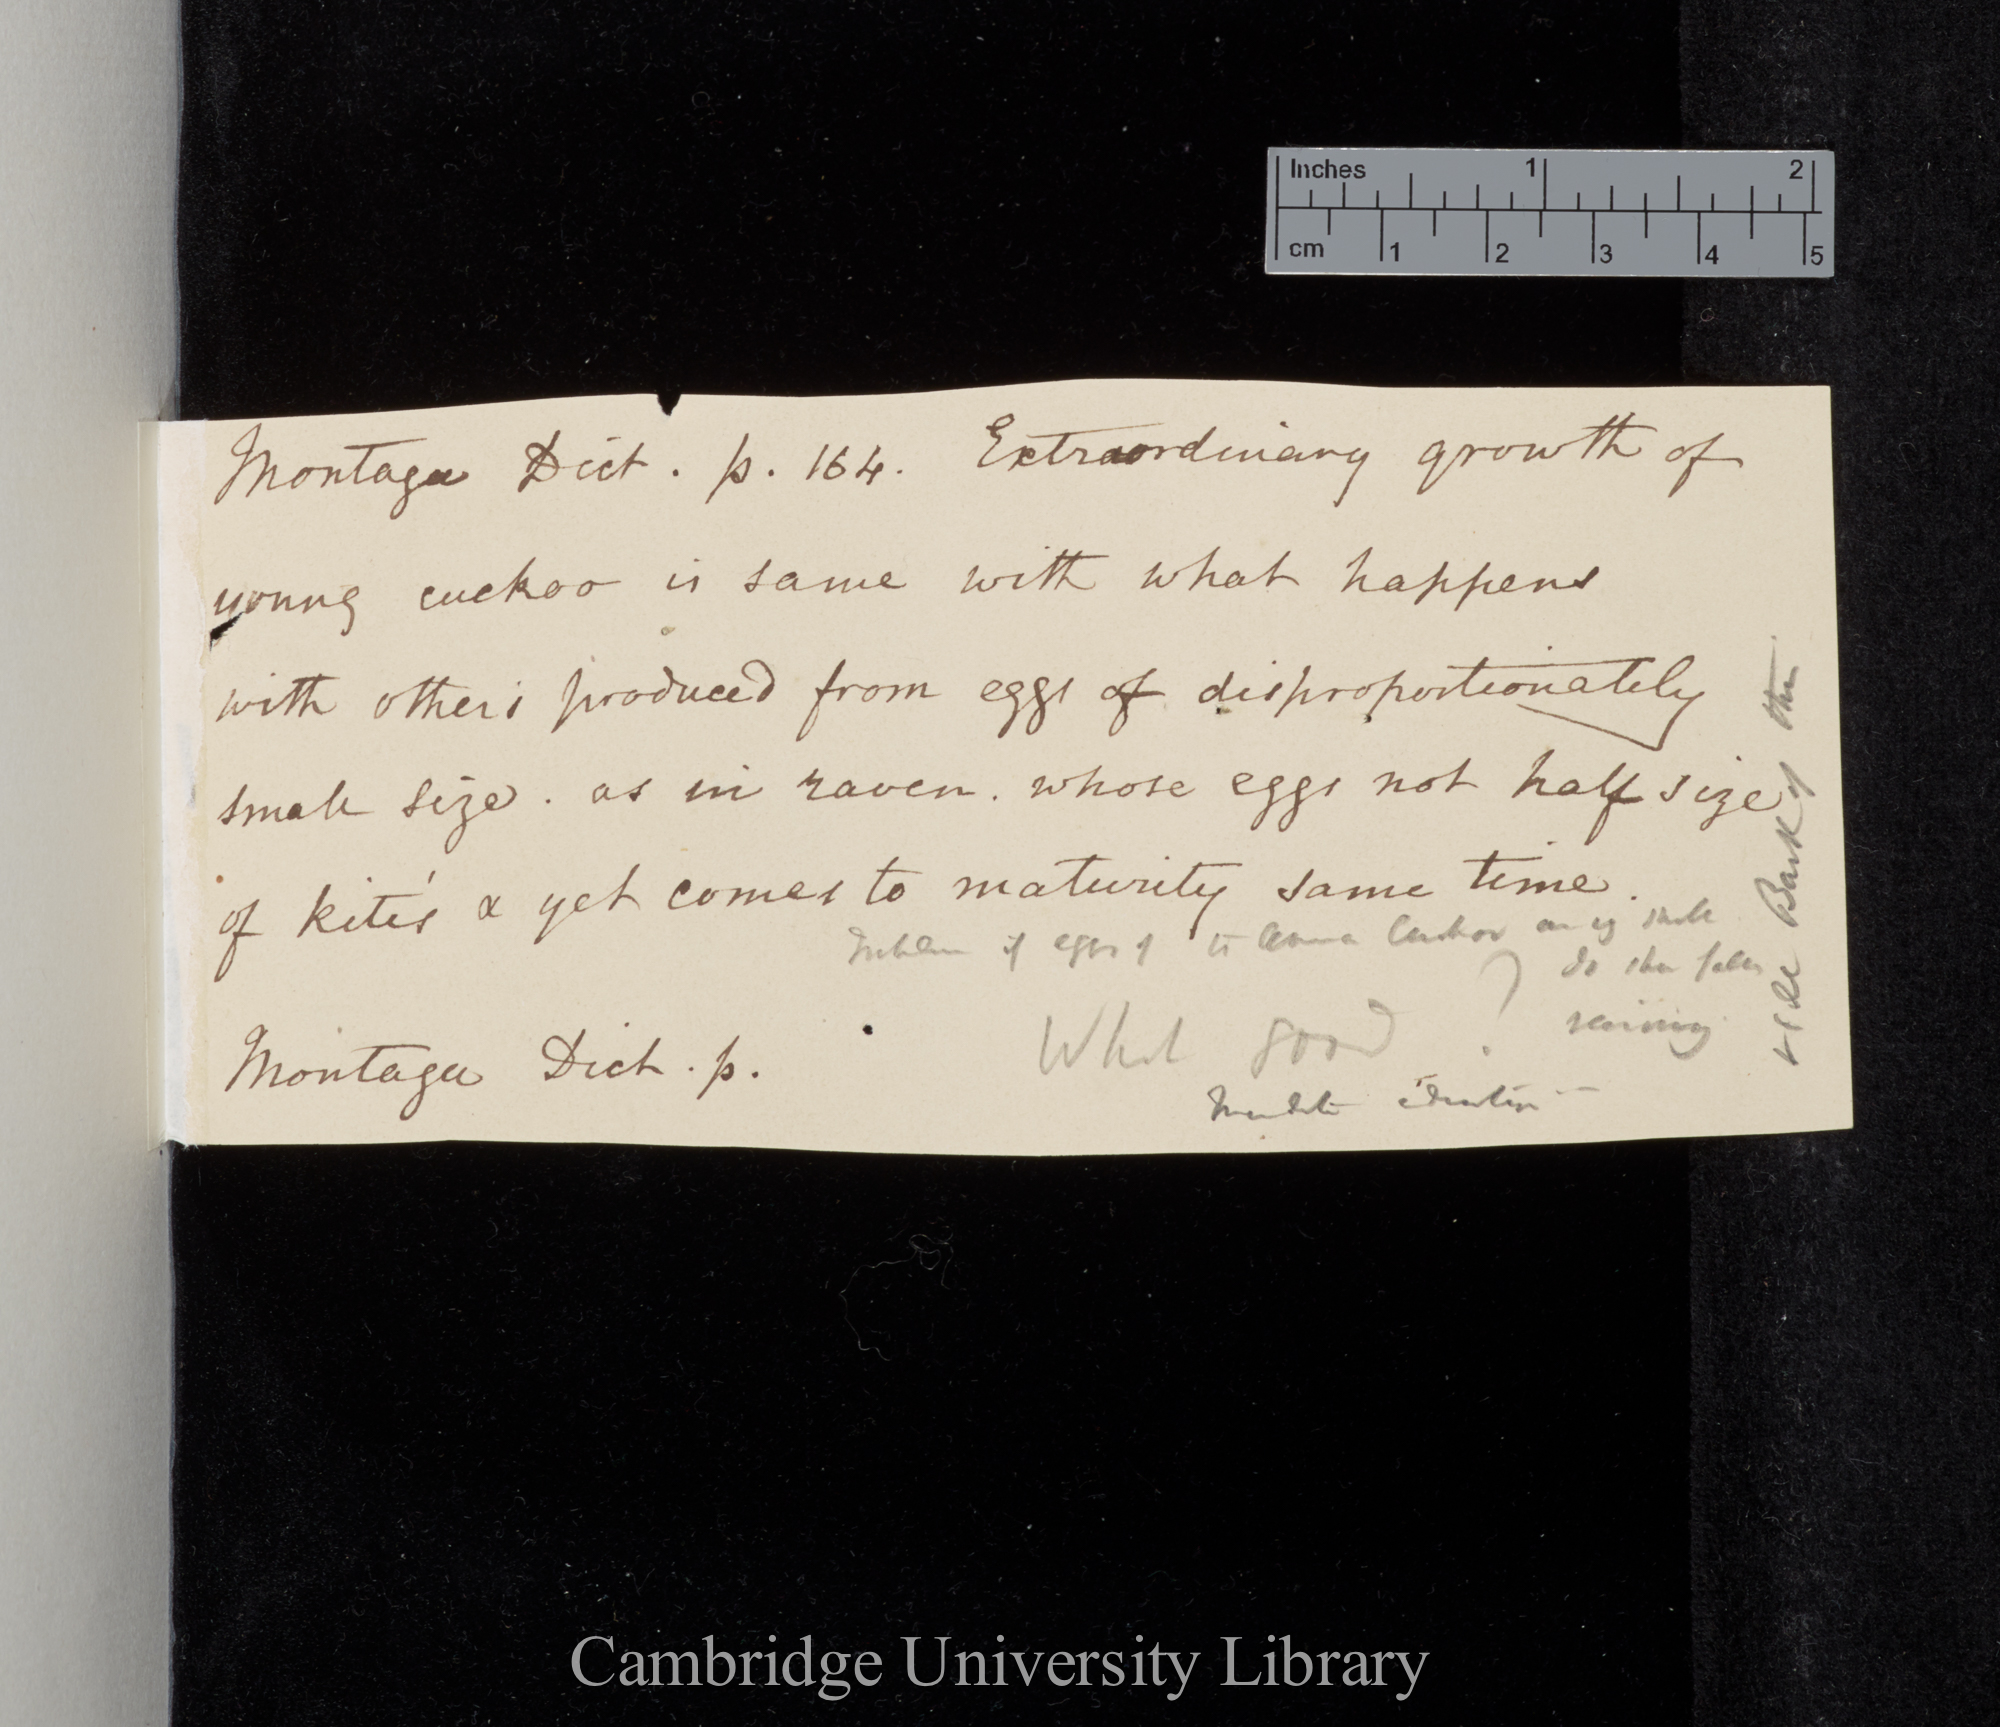 Inches 1 2
cm 1 2 3 4 5
Montagu Dict. p. 164. Extraordinary growth of
young cuckoo is same with what happens
with others produced from eggs of disproportionately
small size. as in raven. whose eggs not half size
of kite's & yet comes to maturity same time.
eggs of
do
What good ?
Montagu Dict. p.
Cambridge University Library